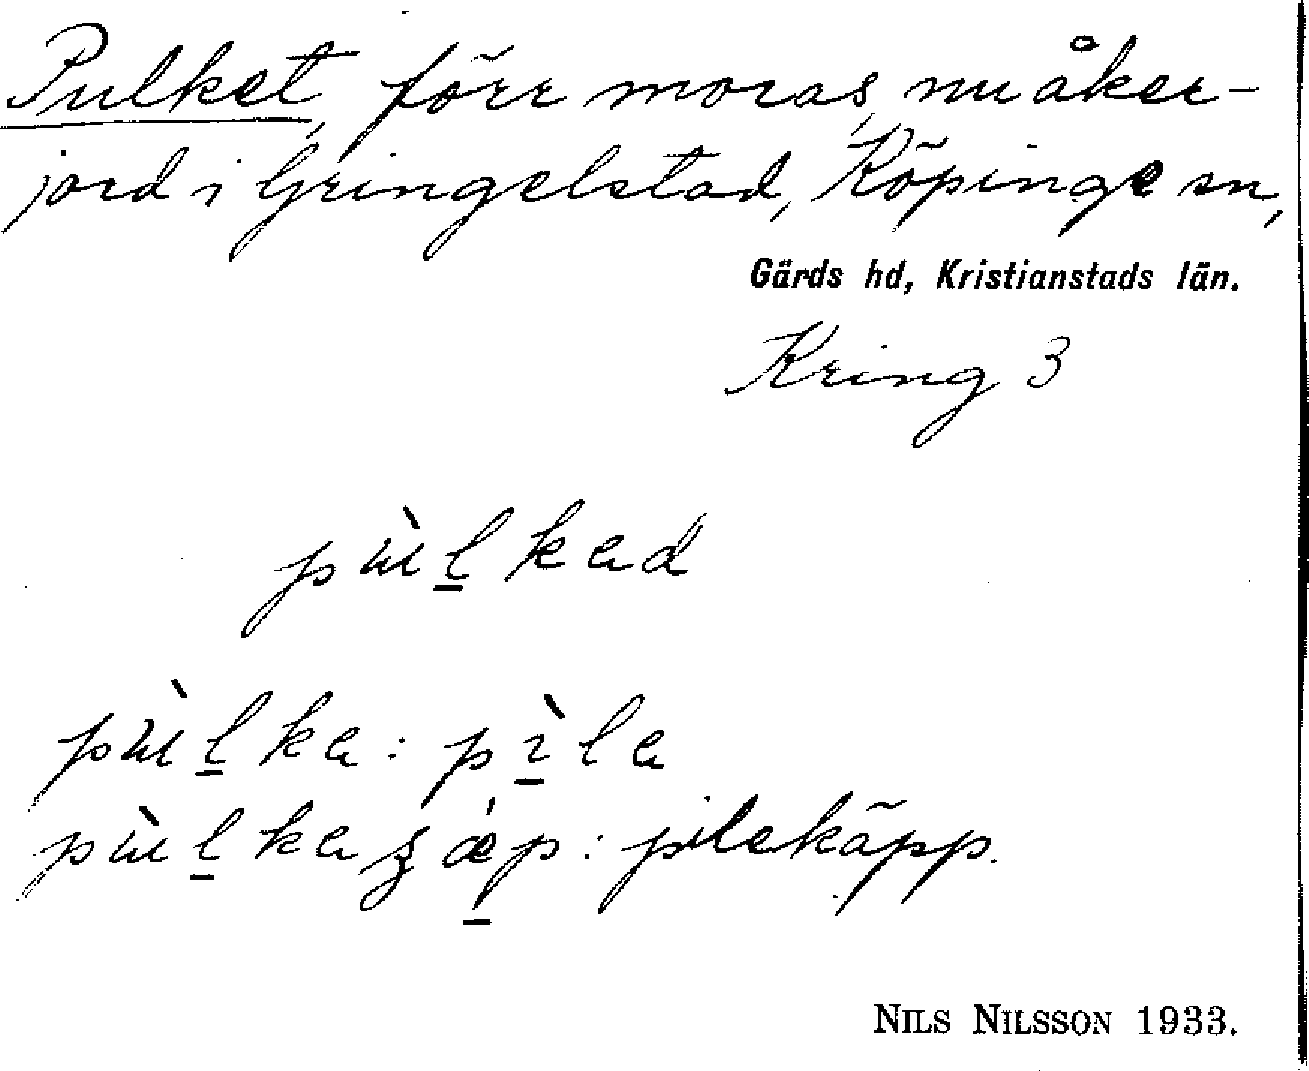 Pulket, förr moras, nu åker-
jord i Gringelstad, Köpinge sn,
Gärds hd, Kristianstads län.
Kring 3
pùḻkad
pùḻka: pı̱̀la
pùḻkaʒǽ̱p: pilekäpp.
NILS NILSSON 1933.